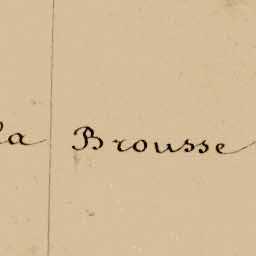 la Brousse